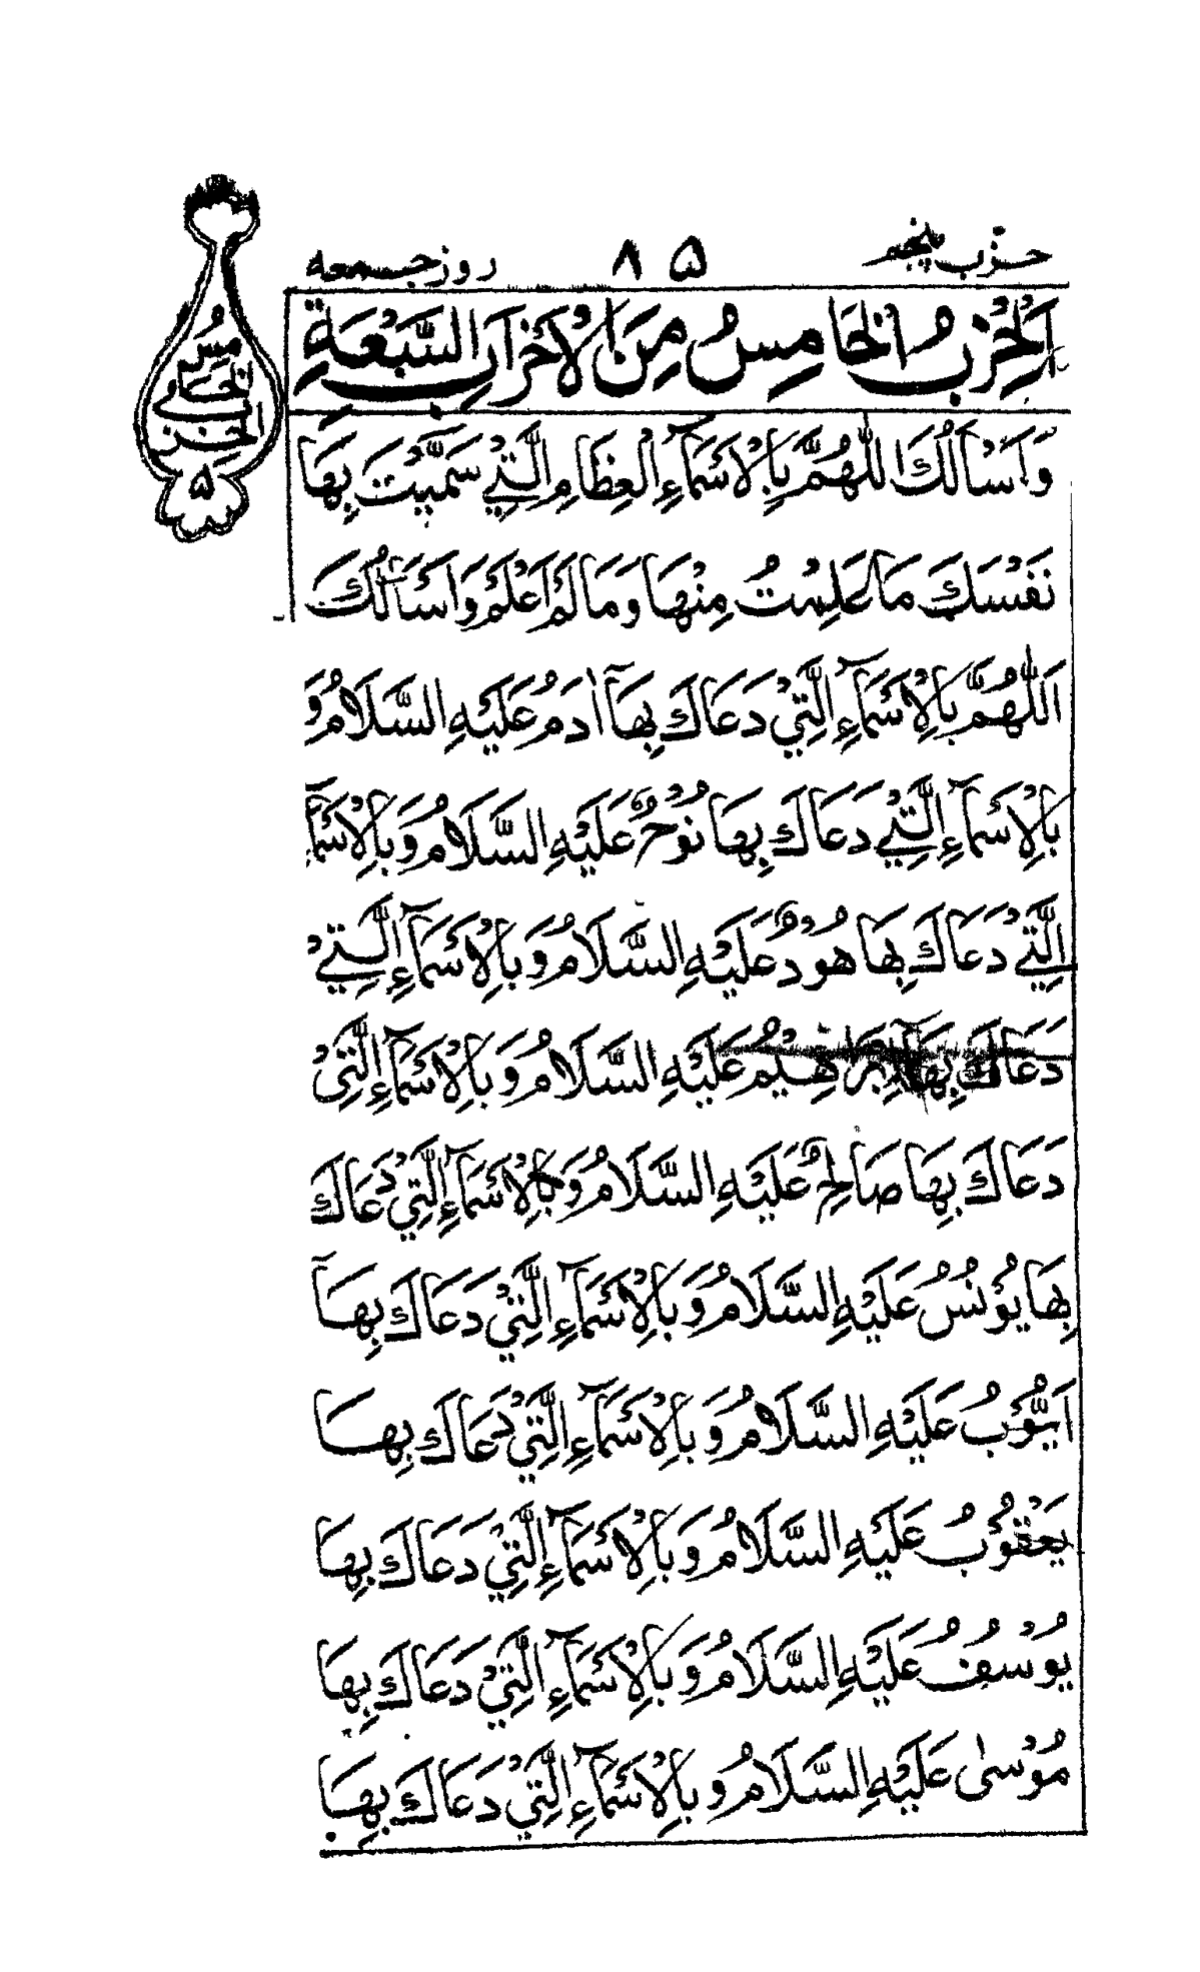 حزب پنجم ۸۵ روز جمعه
اَلْحِزْبُ الْخَامِسُ مِنَ الْاَحْزَابِ السَّبْعَةِ
الحزب
الخامس
۵
وَاَسْاَلُكَ اللّٰهُمَّ بِالْاَسْمَآءِ الْعِظَامِ الَّتِيْ سَمَّيْتَ بِهَا
نَفْسَكَ مَا عَلِمْتُ مِنْهَا وَمَا لَمْ اَعْلَمْ وَاَسْاَلُكَ
اَللّٰهُمَّ بِالْاَسْمَآءِ الَّتِيْ دَعَاكَ بِهَآ اٰدَمُ عَلَيْهِ السَّلَامُ وَ
بِالْاَسْمَآءِ الَّتِيْ دَعَاكَ بِهَا نُوْحٌ عَلَيْهِ السَّلَامُ وَبِالْاَسْمَآءِ
الَّتِيْ دَعَاكَ بِهَا هُوْدٌ عَلَيْهِ السَّلَامُ وَبِالْاَسْمَآءِ الَّتِيْ
دَعَاكَ بِهَآ اِبْرَاهِيْمُ عَلَيْهِ السَّلَامُ وَبِالْاَسْمَآءِ الَّتِيْ
دَعَاكَ بِهَا صَالِحٌ عَلَيْهِ السَّلَامُ وَبِالْاَسْمَآءِ الَّتِيْ دَعَاكَ
بِهَا يُوْنُسُ عَلَيْهِ السَّلَامُ وَبِالْاَسْمَآءِ الَّتِيْ دَعَاكَ بِهَآ
اَيُّوْبُ عَلَيْهِ السَّلَامُ وَبِالْاَسْمَآءِ الَّتِيْ دَعَاكَ بِهَا
يَعْقُوْبُ عَلَيْهِ السَّلَامُ وَبِالْاَسْمَآءِ الَّتِيْ دَعَاكَ بِهَا
يُوْسُفُ عَلَيْهِ السَّلَامُ وَبِالْاَسْمَآءِ الَّتِيْ دَعَاكَ بِهَا
مُوْسٰى عَلَيْهِ السَّلَامُ وَبِالْاَسْمَآءِ الَّتِيْ دَعَاكَ بِهَا